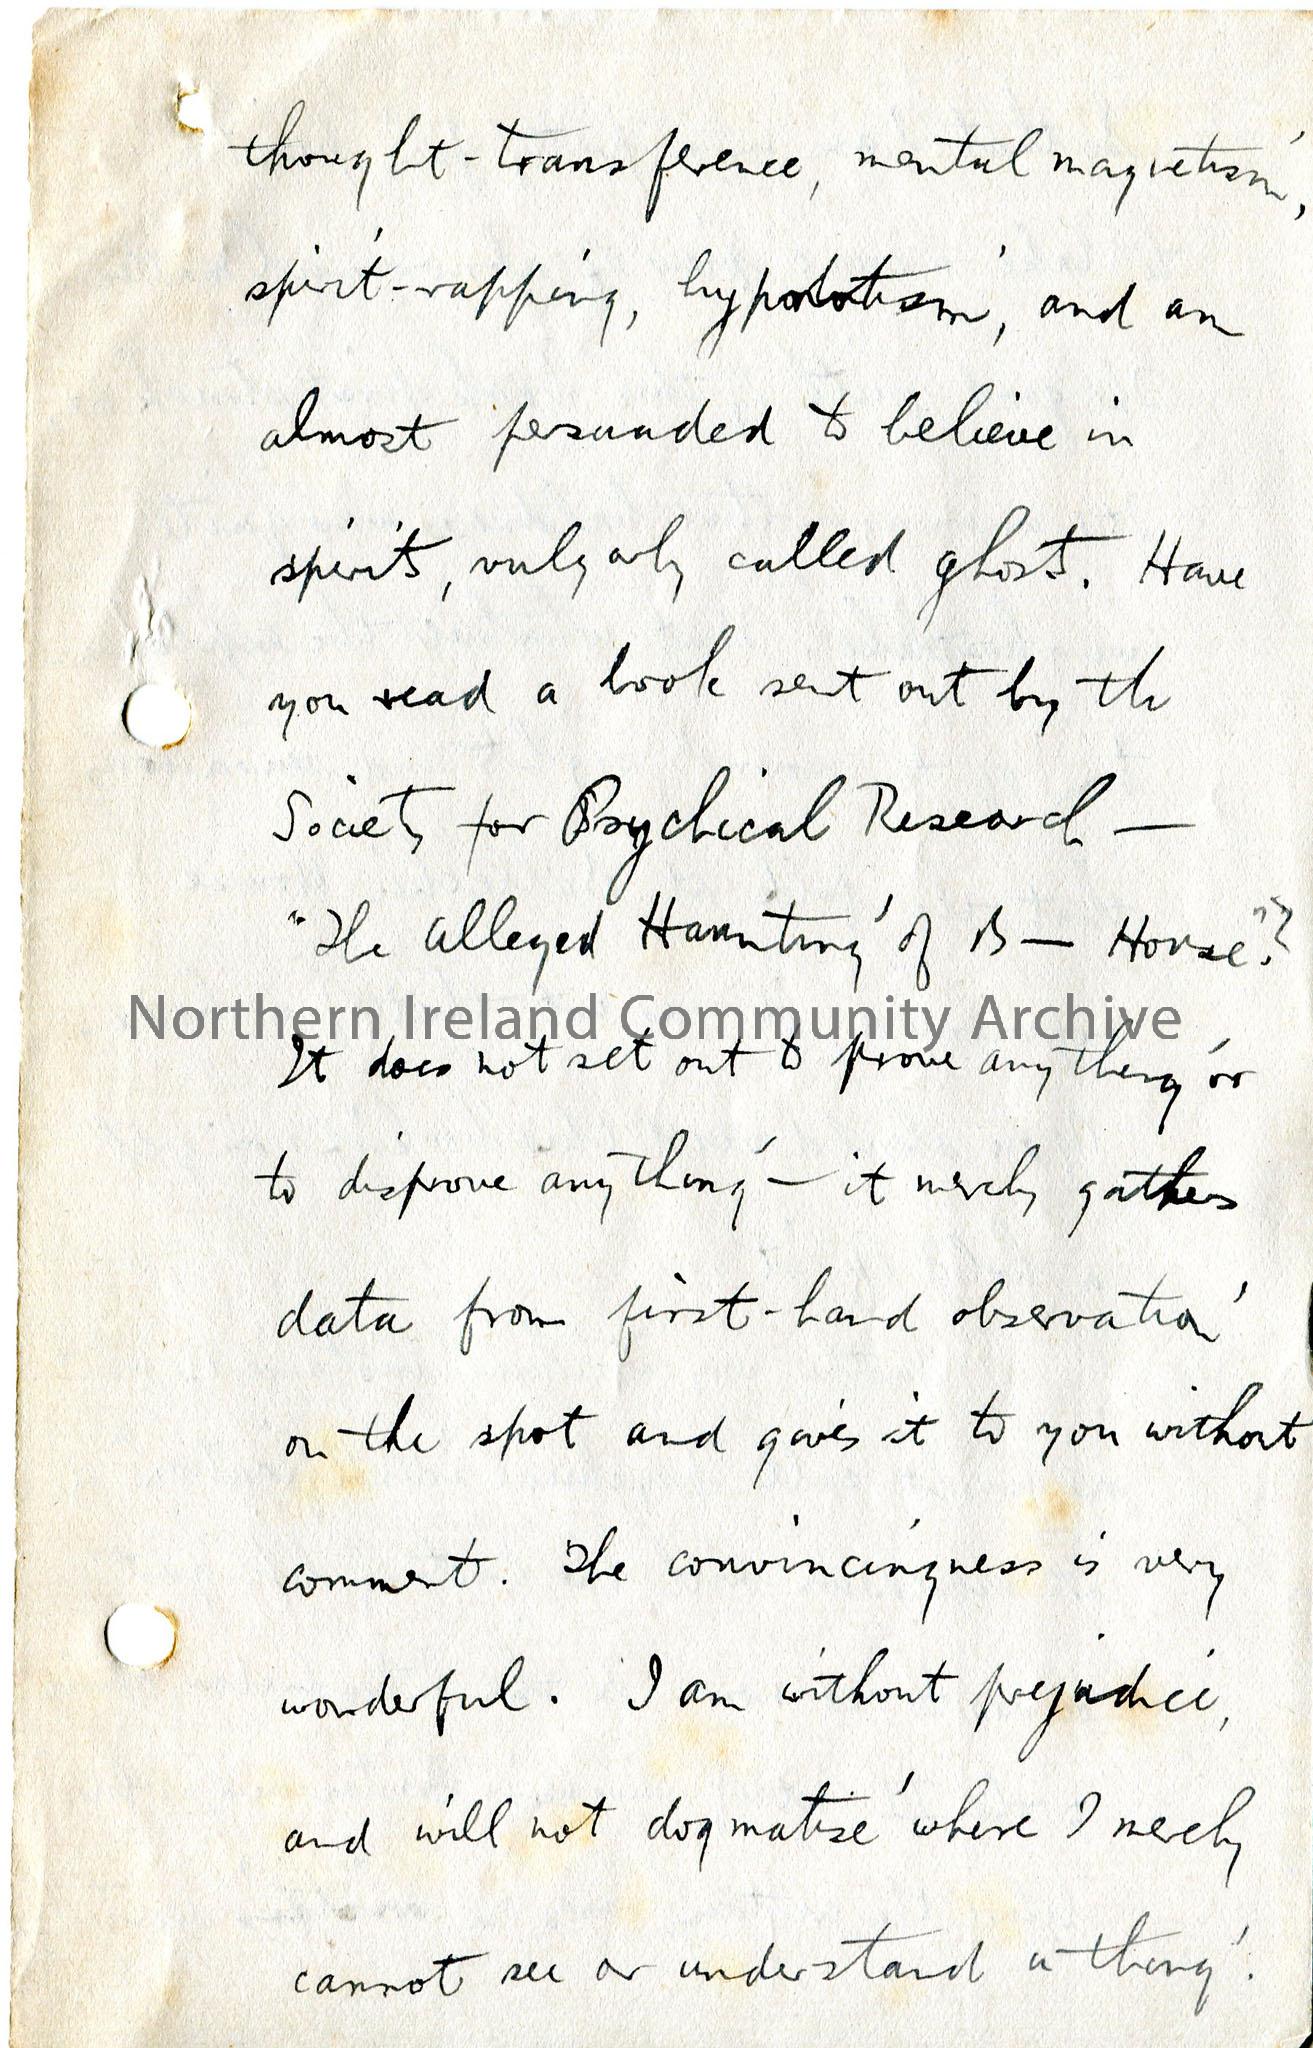 thought-transference, mental magnetism,
spirit-rapping, hypnotism, and am
almost persuaded to believe in
spirits, vulgarly called ghosts. Have
you read a book sent out by the
Society for Psychical Research —
"The Alleged Haunting of B— House"?
Northern Ireland Community Archive
It does not set out to prove anything or
to disprove anything — it merely gathers
data from first-hand observation
on the spot and gives it to you without
comment. The convincingness is very
wonderful. I am without prejudice,
and will not dogmatise where I merely
cannot see or understand a thing.